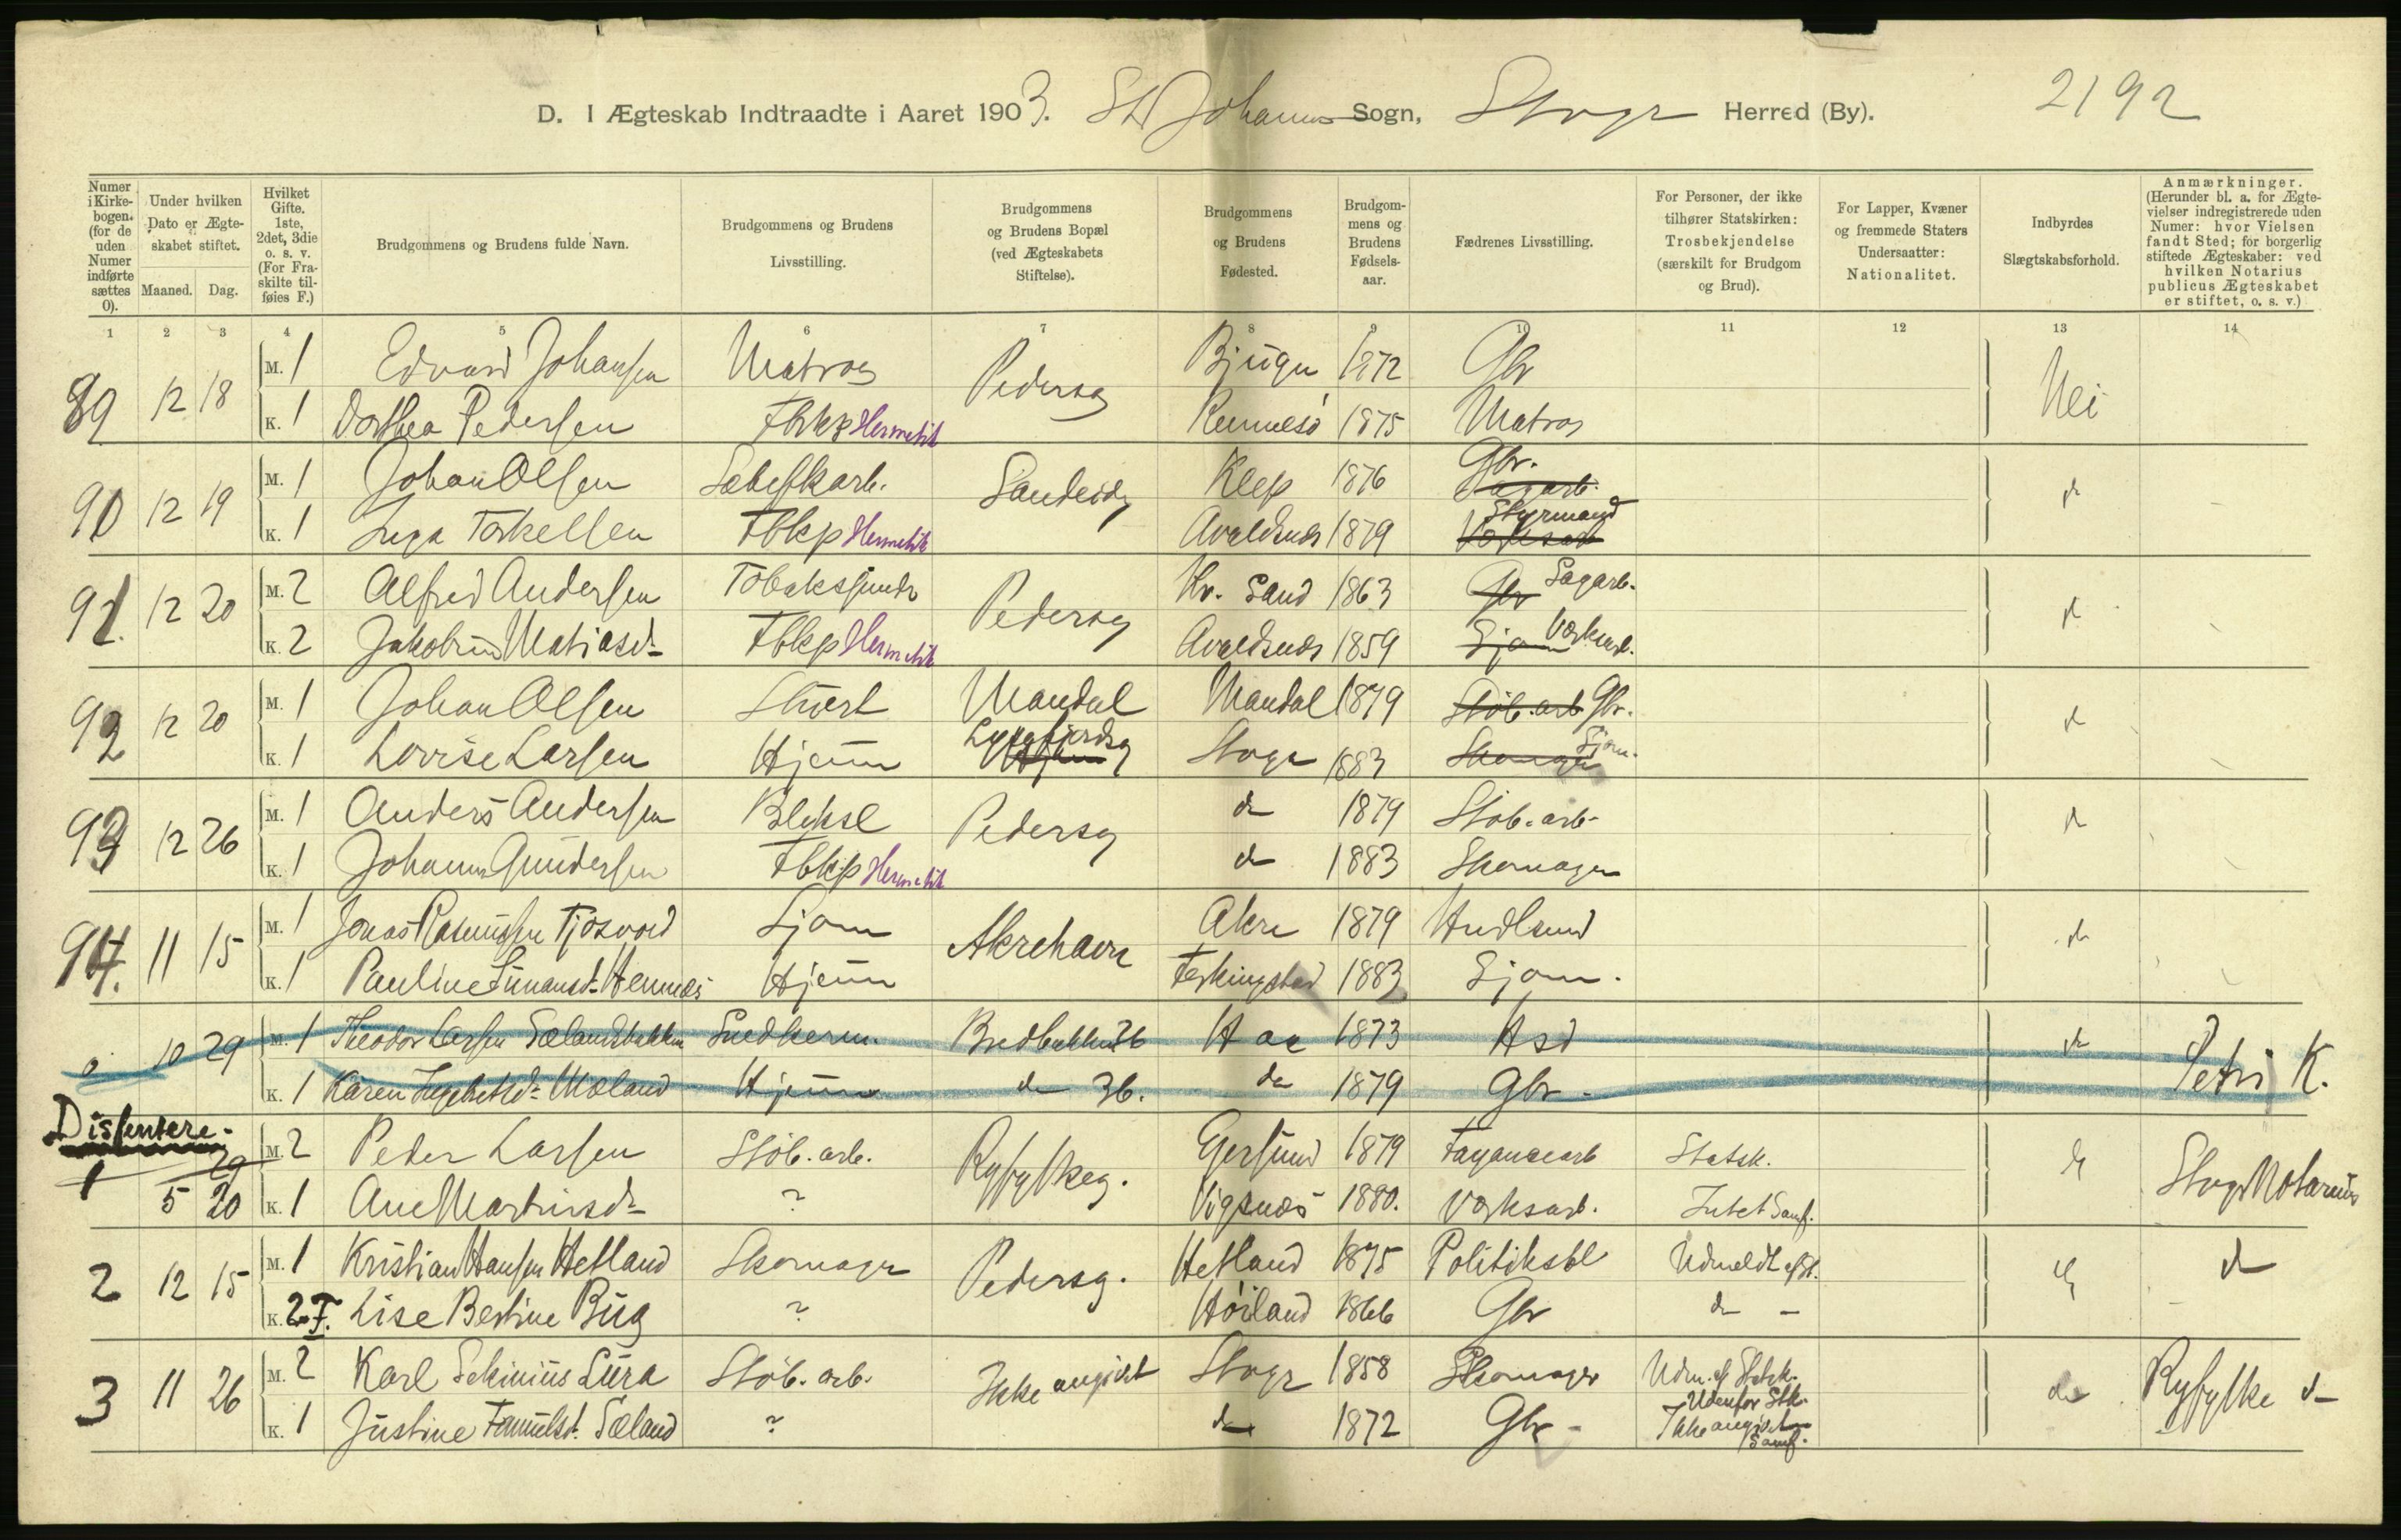 D. I Ægteskab Indtraadte i Aaret 1903. St Johannes Sogn, Stvgr Herred (By). 2192
Numer i Kirkebogen. (for de uden Numer indførte sættes 0).
Under hvilken Dato er Ægteskabet stiftet.
Maaned. Dag.
Hvilket Gifte. 1ste, 2det, 3die o. s. v. (For Fraskilte tilføies F.)
Brudgommens og Brudens fulde Navn.
Brudgommens og Brudens Livsstilling.
Brudgommens og Brudens Bopæl (ved Ægteskabets Stiftelse).
Brudgommens og Brudens Fødested.
Brudgommens og Brudens Fødselsaar.
Fædrenes Livsstilling.
For Personer, der ikke tilhører Statskirken: Trosbekjendelse (særskilt for Brudgom og Brud).
For Lapper, Kvæner og fremmede Staters Undersaatter: Nationalitet.
Indbyrdes Slægtskabsforhold.
Anmærkninger. (Herunder bl. a. for Ægtevielser indregistrerede uden Numer: hvor Vielsen fandt Sted; for borgerlig stiftede Ægteskaber: ved hvilken Notarius publicus Ægteskabet er stiftet, o. s. v.)
1 2 3 4 5 6 7 8 9 10 11 12 13 14
89 12 18 M. 1 Edvard Johansen Matros Pedersg Bjugn 1872 Gbr Nei
K. 1 Dorthea Pedersen Fbkp Hermetik Rennesö 1875 Matros
90 12 19 M. 1 Johan Olsen Sandeidg Klep 1876 Gbr. Dagarb. d
K. 1 Inga Torkelsen Fbkp Hermetik Avaldsnæs 1879 Styrmand
91. 12 20 M. 2 Alfred Andersen Pedersg Kr. Sand 1863 Gbr Sagarb. d
K. 2 Jakobine Matiasd. Fbkp Hermetik Avaldsnæs 1859 Sjöm
92 12 20 M. 1 Johan Olsen Stuert Mandal Mandal 1879 Stöb. arb Gbr. d
K. 1 Lovise Larsen Hjemme Lyngfjordsg Stvgr 1883 Skomager Sjöm.
93 12 26 M. 1 Anders Andersen Pedersg d 1879 Stöb. arb. d
K. 1 Johanne Gundersen Fbkp Hermetik d 1883 Skomager
94. 11 15 M. 1 Jonas Rasmussen Tjösvold Sjöm Akrehavn Akre 1879 d
K. 1 Hjemme Ferkingstad 1883 Sjöm.
0 10 29 M. 1 Theodor Larsen Sælandsbakken Snedkerm. Bredbakken 36 Haa 1873 d Petri K.
K. 1 Karen Ingebretsd. Hjemme d 36. da 1879 Gbr.
Dissentere.
1 29 M. 2 Peder Larsen Stöb. arb. Ryfylkeg. Egersund 1879 Fayancearb Statsk. d Stvgr Notarius
5 20 K. 1 Ane Martinsd. ? Vigsnæs 1880. Værksarb. Intet Samf.
2 12 15 M. 1 Kristian Hansen Hetland Skomager Pedersg. Hetland 1875 Politikbl Udmeldt af St. d d
K. 2 F. Lise Bertine ? Höiland 1866 Gbr d –
3 11 26 M. 2 Karl Stöb. arb. Ikke angivet Stvgr 1858 Skomager Udm. af Statsk. da Ryfylke d
K. 1 Justine Sæland ? da 1872 Gbr Udenfor Stk. Ikke angivet Samf.